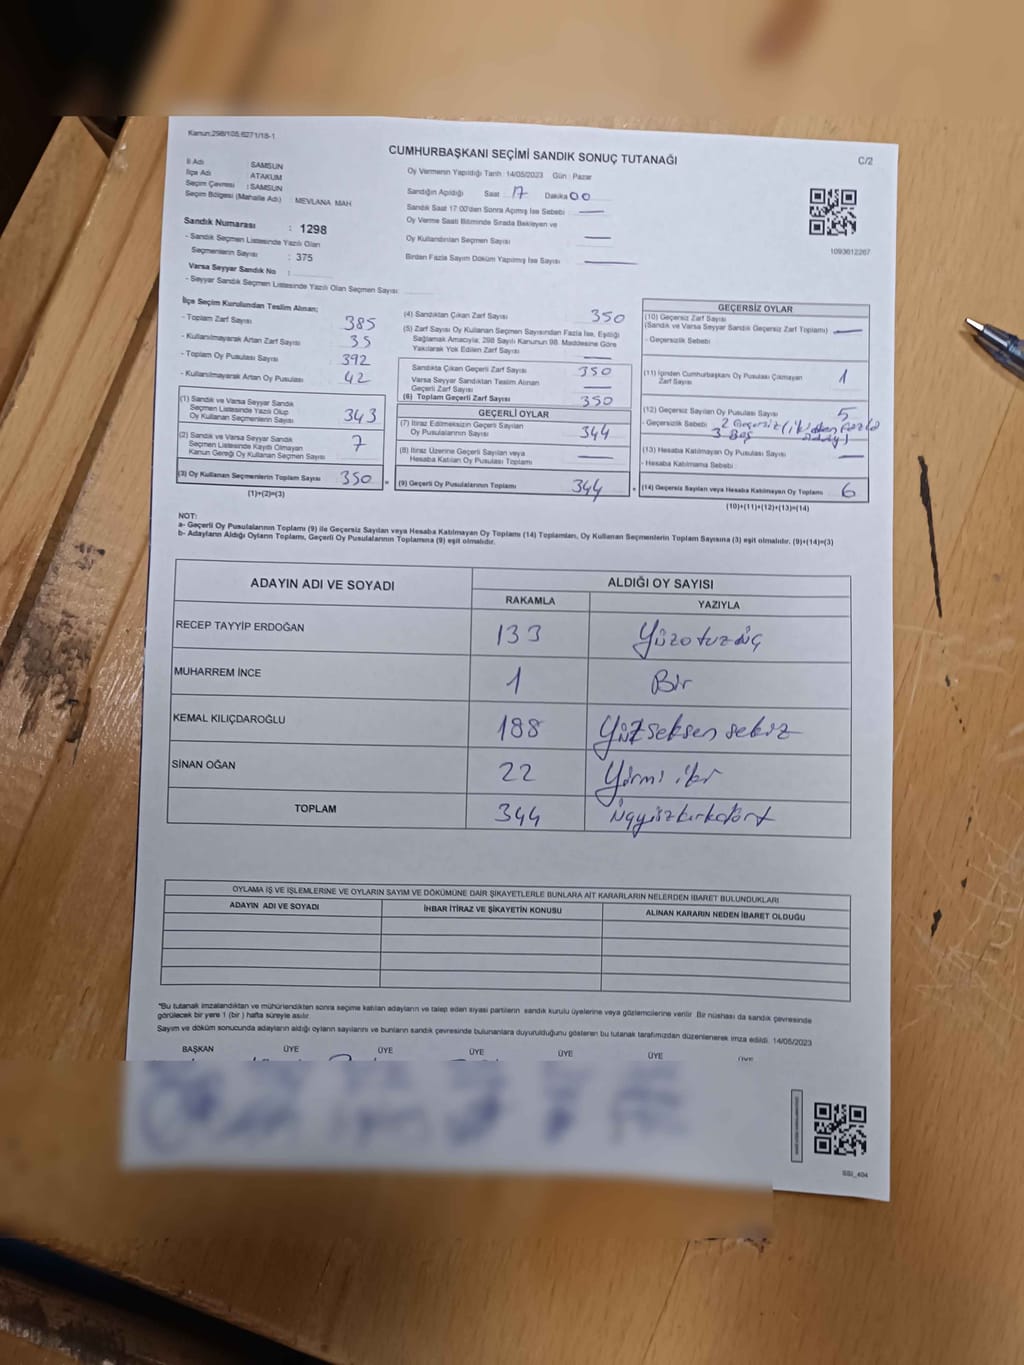 Kanun:298/105,6271/18-1
C/2
CUMHURBAŞKANI SEÇİMİ SANDIK SONUÇ TUTANAĞI
İl Adı : SAMSUN
İlçe Adı : ATAKUM
Seçim Çevresi : SAMSUN
Seçim Bölgesi (Mahalle Adı) : MEVLANA MAH
Sandık Numarası : 1298
- Sandık Seçmen Listesinde Yazılı Olan
Seçmenlerin Sayısı : 375
Varsa Seyyar Sandık No :
- Seyyar Sandık Seçmen Listesinde Yazılı Olan Seçmen Sayısı:
Oy Vermenin Yapıldığı Tarih : 14/05/2023 Gün : Pazar
Sandığın Açıldığı Saat 17 Dakika 00
Sandık Saat 17:00'den Sonra Açımış İse Sebebi : —
Oy Verme Saati Bitiminde Sırada Bekleyen ve
Oy Kullandırılan Seçmen Sayısı —
Birden Fazla Sayım Döküm Yapılmış İse Sayısı —
1093612267
İlçe Seçim Kurulundan Teslim Alınan;
- Toplam Zarf Sayısı 385
- Kullanılmayarak Artan Zarf Sayısı 35
- Toplam Oy Pusulası Sayısı 392
- Kullanılmayarak Artan Oy Pusulası 42
(1) Sandık ve Varsa Seyyar Sandık
Seçmen Listesinde Yazılı Olup
Oy Kullanan Seçmenlerin Sayısı 343
(2) Sandık ve Varsa Seyyar Sandık
Seçmen Listesinde Kayıtlı Olmayan
Kanun Gereği Oy Kullanan Seçmen Sayısı 7
(3) Oy Kullanan Seçmenlerin Toplam Sayısı 350 =
(1)+(2)=(3)
(4) Sandıktan Çıkan Zarf Sayısı 350
(5) Zarf Sayısı Oy Kullanan Seçmen Sayısından Fazla İse, Eşitliği
Sağlamak Amacıyla; 298 Sayılı Kanunun 98. Maddesine Göre
Yakılarak Yok Edilen Zarf Sayısı —
Sandıkta Çıkan Geçerli Zarf Sayısı 350
Varsa Seyyar Sandıktan Teslim Alınan
Geçerli Zarf Sayısı —
(6) Toplam Geçerli Zarf Sayısı 350
GEÇERLİ OYLAR
(7) İtiraz Edilmeksizin Geçerli Sayılan
Oy Pusulalarının Sayısı 344
(8) İtiraz Üzerine Geçerli Sayılan veya
Hesaba Katılan Oy Pusulası Toplamı —
(9) Geçerli Oy Pusulalarının Toplamı 344 +
GEÇERSİZ OYLAR
(10) Geçersiz Zarf Sayısı
(Sandık ve Varsa Seyyar Sandık Geçersiz Zarf Toplamı) —
- Geçersizlik Sebebi :
(11) İçinden Cumhurbaşkanı Oy Pusulası Çıkmayan
Zarf Sayısı 1
(12) Geçersiz Sayılan Oy Pusulası Sayısı 5
- Geçersizlik Sebebi 2 Geçersiz (ikiden fazla
3 Boş aday)
(13) Hesaba Katılmayan Oy Pusulası Sayısı —
- Hesaba Katılmama Sebebi :
(14) Geçersiz Sayılan veya Hesaba Katılmayan Oy Toplamı 6
(10)+(11)+(12)+(13)=(14)
NOT:
a- Geçerli Oy Pusulalarının Toplamı (9) ile Geçersiz Sayılan veya Hesaba Katılmayan Oy Toplamı (14) Toplamları, Oy Kullanan Seçmenlerin Toplam Sayısına (3) eşit olmalıdır. (9)+(14)=(3)
b- Adayların Aldığı Oyların Toplamı, Geçerli Oy Pusulalarının Toplamına (9) eşit olmalıdır.
ADAYIN ADI VE SOYADI ALDIĞI OY SAYISI
RAKAMLA YAZIYLA
RECEP TAYYİP ERDOĞAN 133 Yüzotuzüç
MUHARREM İNCE 1 Bir
KEMAL KILIÇDAROĞLU 188 Yüzseksen sekiz
SİNAN OĞAN 22 Yirmi iki
TOPLAM 344 Üçyüzkırkdört
OYLAMA İŞ VE İŞLEMLERİNE VE OYLARIN SAYIM VE DÖKÜMÜNE DAİR ŞİKAYETLERLE BUNLARA AİT KARARLARIN NELERDEN İBARET BULUNDUKLARI
ADAYIN ADI VE SOYADI İHBAR İTİRAZ VE ŞİKAYETİN KONUSU ALINAN KARARIN NEDEN İBARET OLDUĞU
*Bu tutanak imzalandıktan ve mühürlendikten sonra seçime katılan adayların ve talep eden siyasi partilerin sandık kurulu üyelerine veya gözlemcilerine verilir. Bir nüshası da sandık çevresinde
görülecek bir yere 1 (bir ) hafta süreyle asılır.
Sayım ve döküm sonucunda adayların aldığı oyların sayılarını ve bunların sandık çevresinde bulunanlara duyurulduğunu gösteren bu tutanak tarafımızdan düzenlenerek imza edildi. 14/05/2023
BAŞKAN ÜYE ÜYE ÜYE ÜYE ÜYE ÜYE
SSI_404